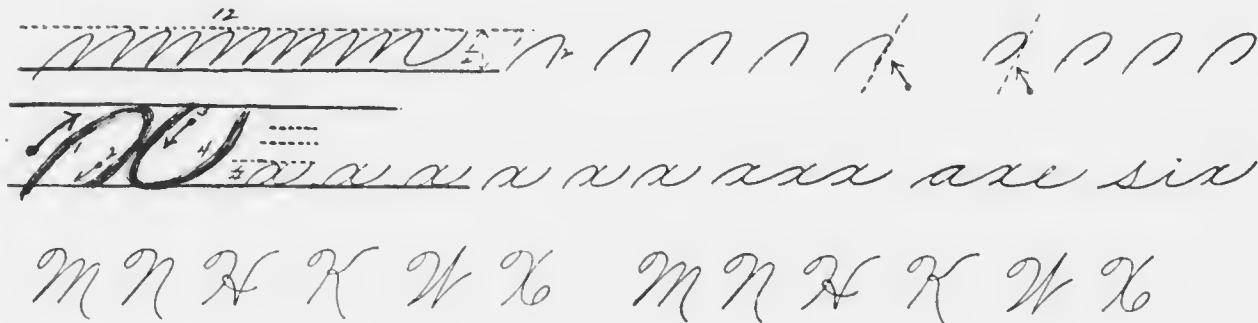 12
1/2 1 2
1 2 3 4 1/4 x x x x x x xxx axe six
M N H K W X M N H K W X